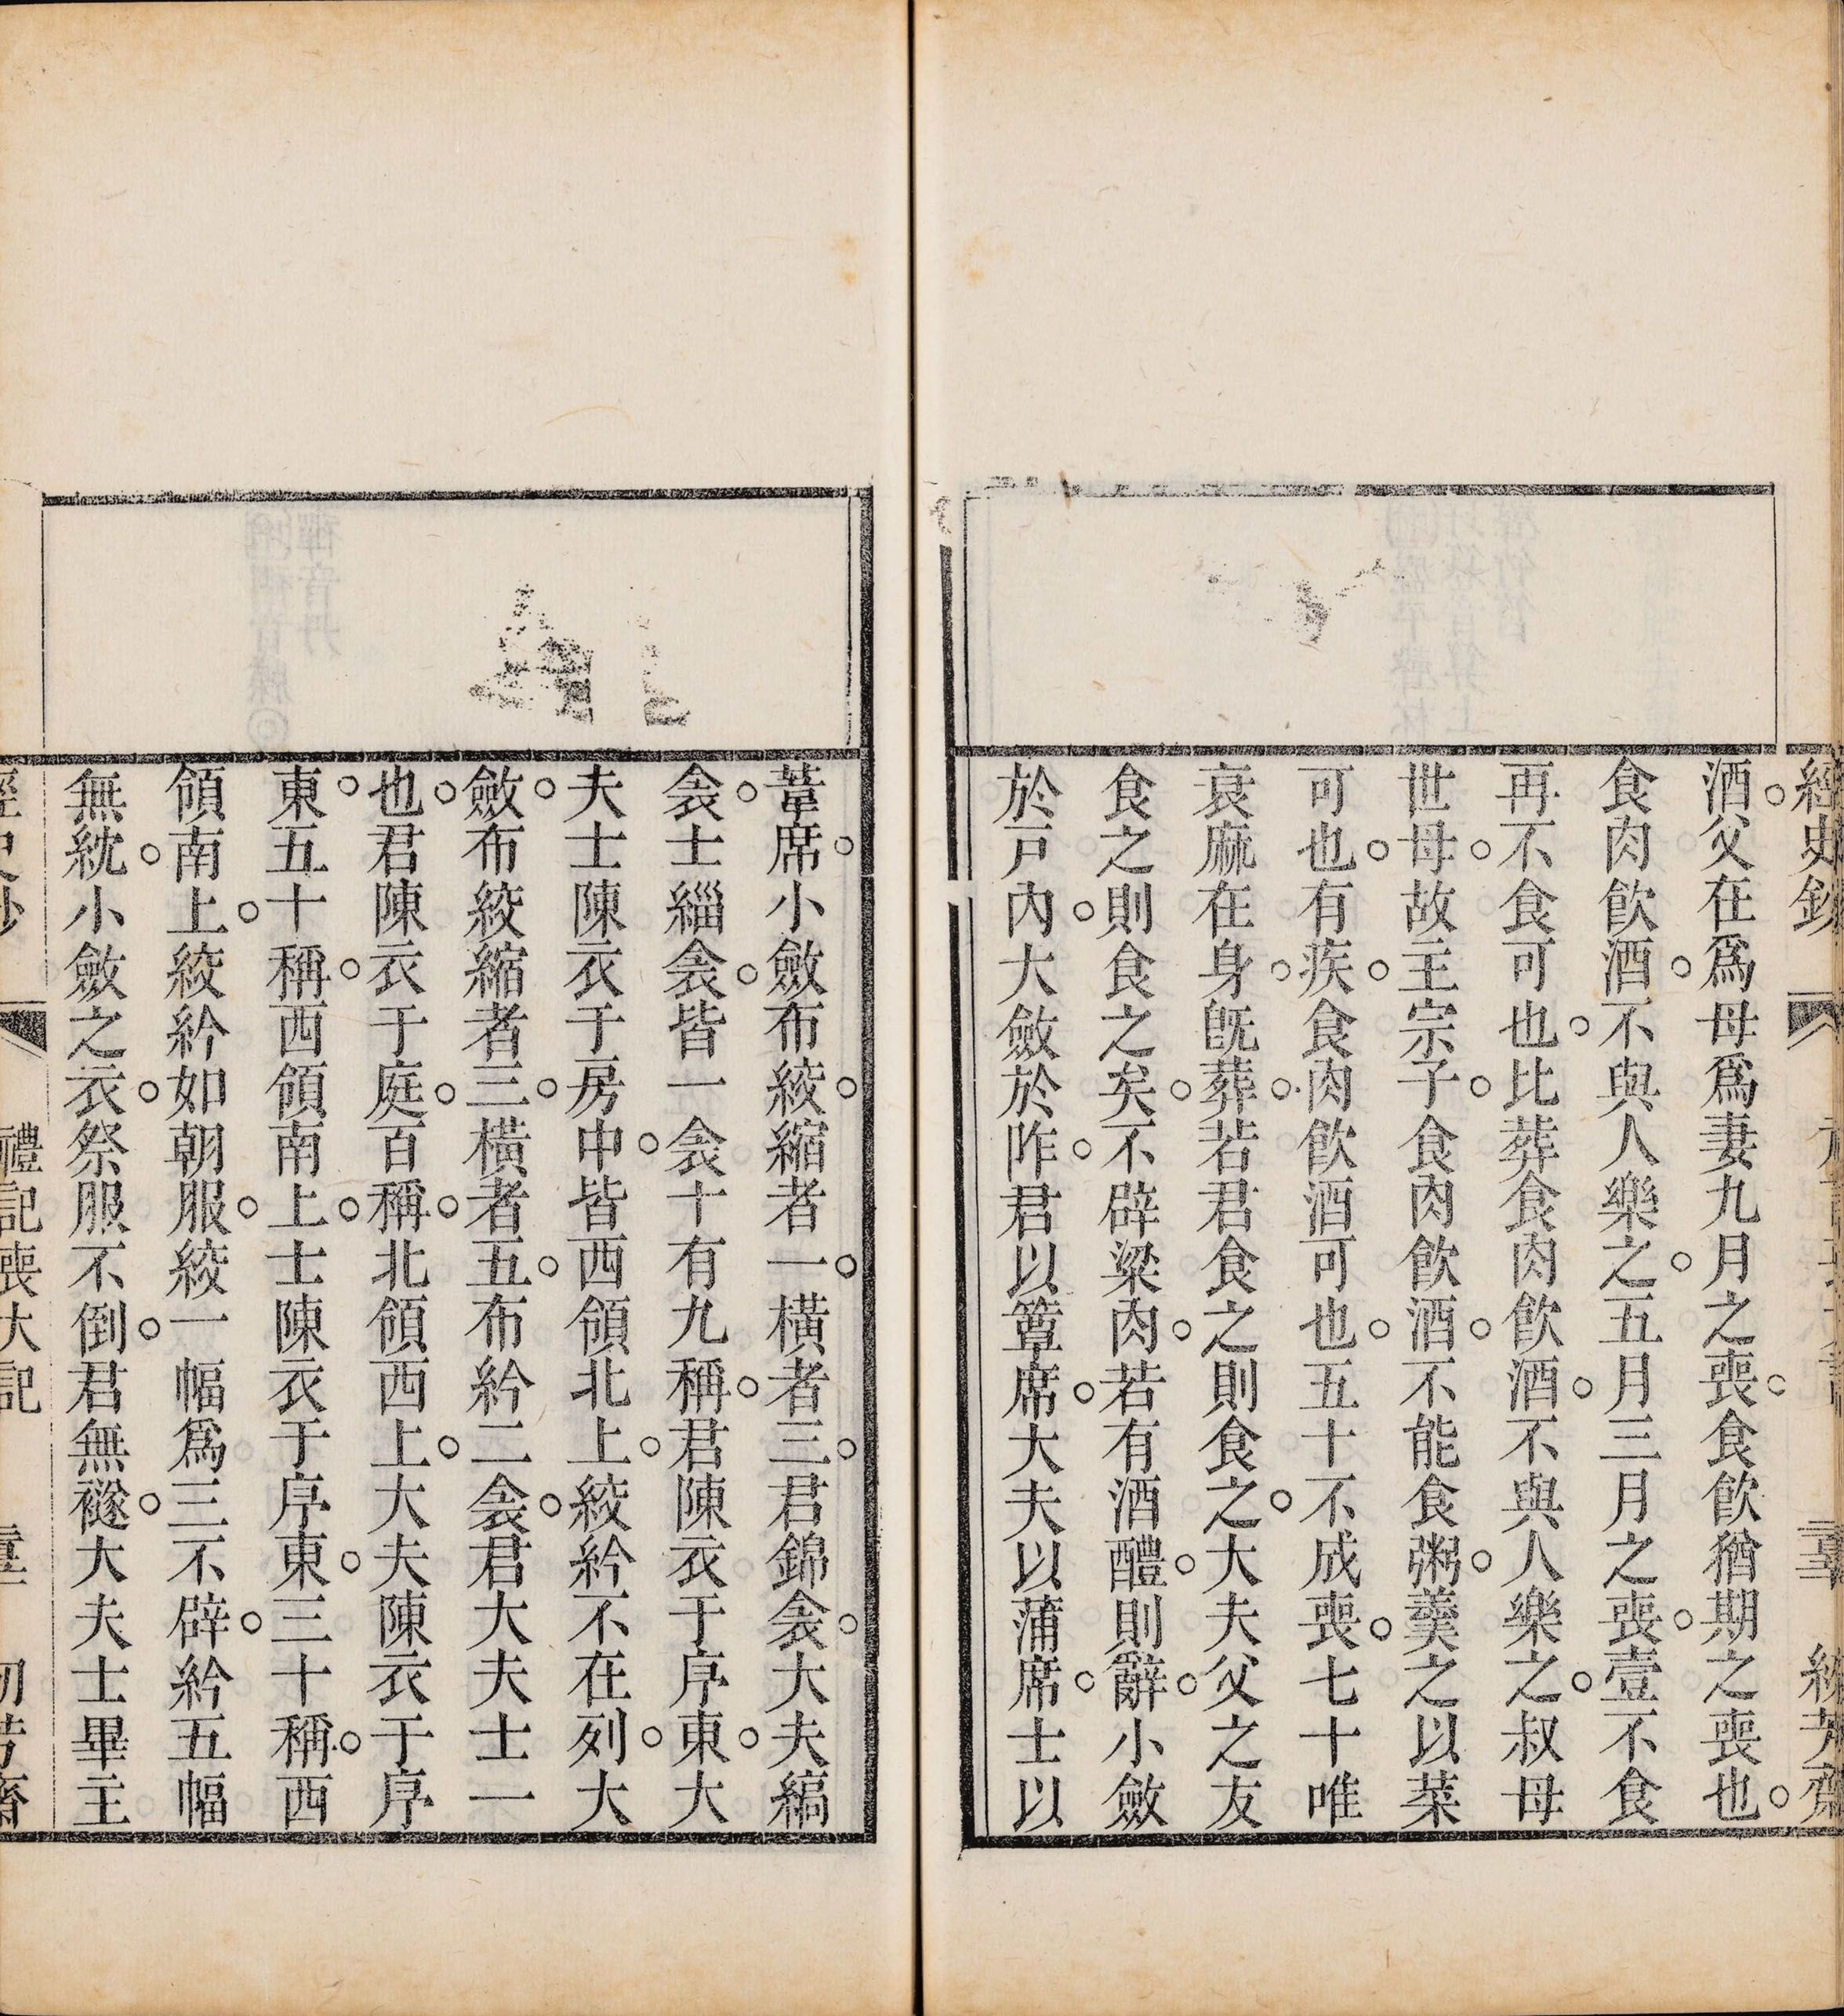 經史鈔
酒。父在爲母爲妻九月之喪。食飮猶期之喪也。
食肉飮酒。不與人樂之。五月三月之喪。壹不食
再不食可也。比葬食肉飮酒。不與人樂之。叔母
世母。故主宗子。食肉飮酒。不能食粥。羹之以菜
可也。有疾。食肉飮酒可也。五十不成喪。七十唯
衰麻在身。旣葬。若君食之則食之。大夫父之友
食之則食之矣。不辟粱肉。若有酒醴。則辭。小斂
於戸內。大斂於阼。君以簟席。大夫以蒲席。士以
葦席。小斂布絞。縮者一。橫者三。君錦衾。大夫縞
衾。士緇衾。皆一衾十有九稱。君陳衣于序東。大
夫士陳衣于房中。皆西領北上。絞紟不在列。大
斂。布絞縮者三。橫者五。布紟二衾。君大夫士一
也。君陳衣于庭。百稱。北領西上。大夫陳衣于序
東。五十稱。西領南上。士陳衣于序東。三十稱。西
領南上。絞紟如朝服。絞一幅爲三不辟。紟五幅
無紞。小斂之衣。祭服不倒。君無襚。大夫士畢主
禮記喪大記